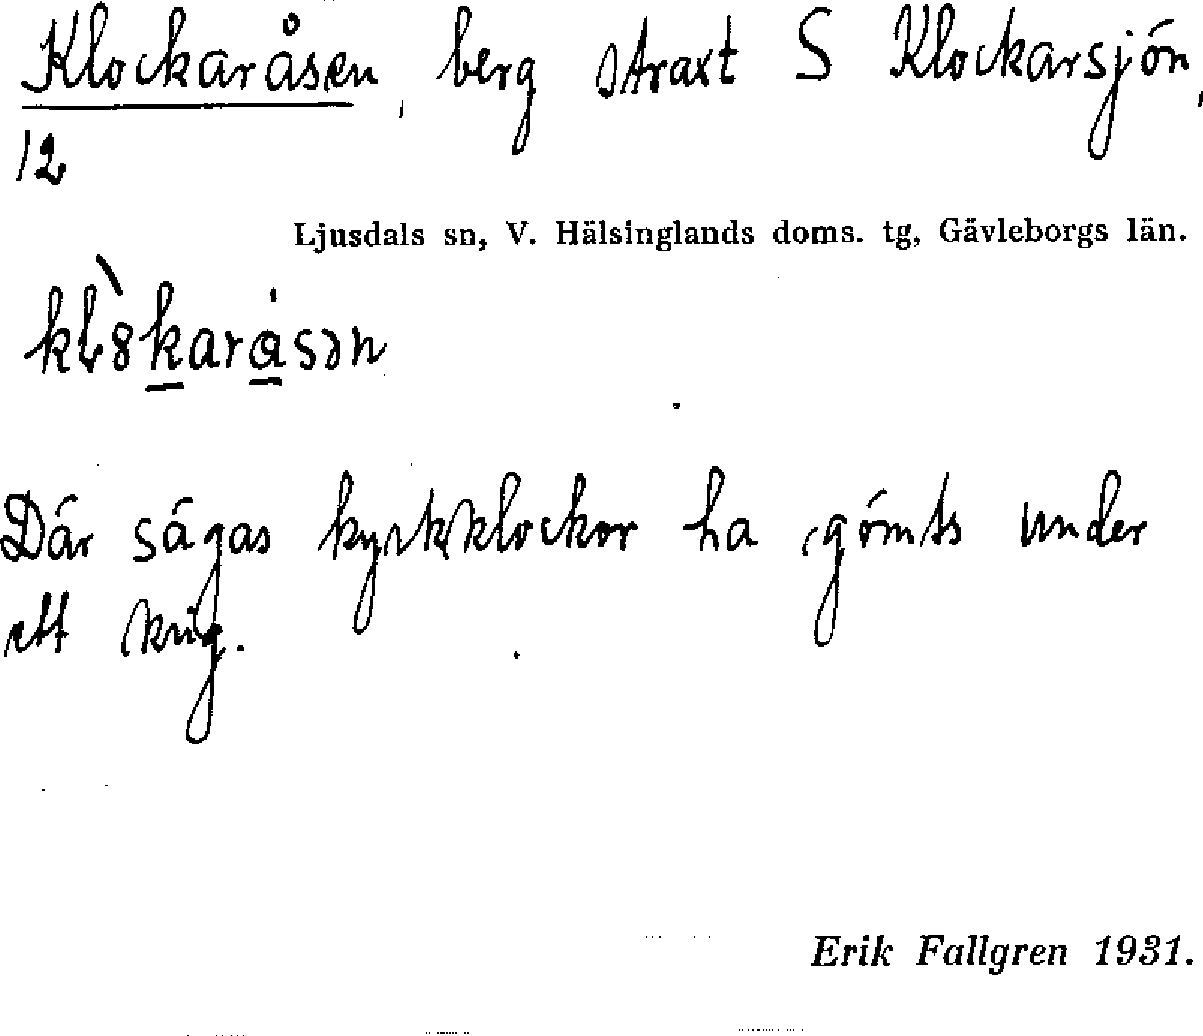 Klockaråsen, berg straxt S Klockarsjön,
12
Ljusdals sn, V. Hälsinglands doms. tg, Gävleborgs län.
Där sägas kyrkklockor ha gömts under
ett krig.
Erik Fallgren 1931.